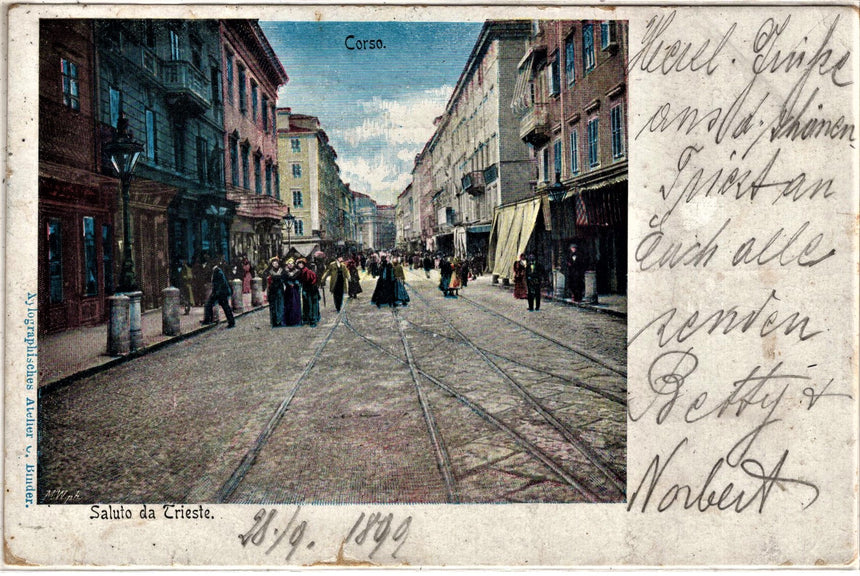 Corso.
Herzl. Grüße
aus d. schönen
Triest an
Euch alle
senden
Betty &
Norbert
Xylographisches Atelier v. Binder.
MW ph.
Saluto da Trieste.
28./9. 1899